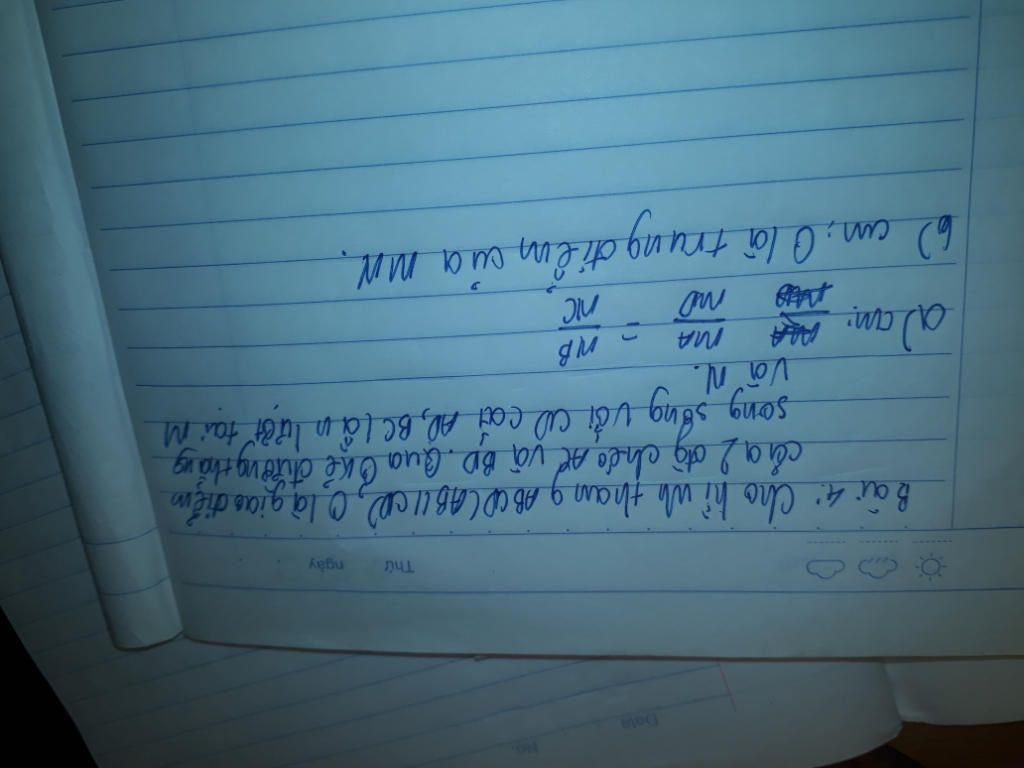 Thứ ngày
Bài 4: Cho hình thang ABCD (AB//CD), O là giao điểm
của 2 đg chéo AC và BD. Qua O kẻ đường thẳng
song song với CD cắt AD, BC lần lượt tại M
và N.
a) cm: MA/MD = NB/NC
b) cm: O là trung điểm của MN.
Date
No